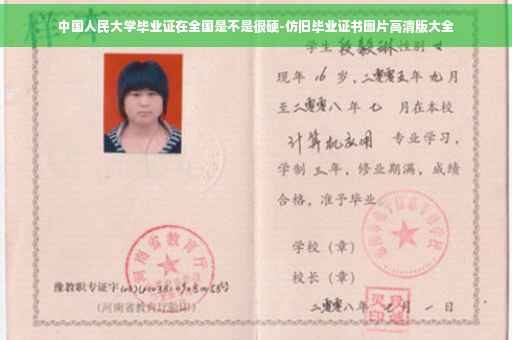 中国人民大学毕业证在全国是不是很硬-仿旧毕业证书图片高清版大全
样本
学生 段毅琳 性别 女
现年 16 岁，二零零五年 九月
至二零零八年 七 月在本校
计算机应用 专业学习，
学制 三年，修业期满，成绩
合格，准予毕业
学校（章）
校长（章）
二零零八年 七 月 一 日
河南省教育厅
豫教职专证字
（河南省教育厅验印）